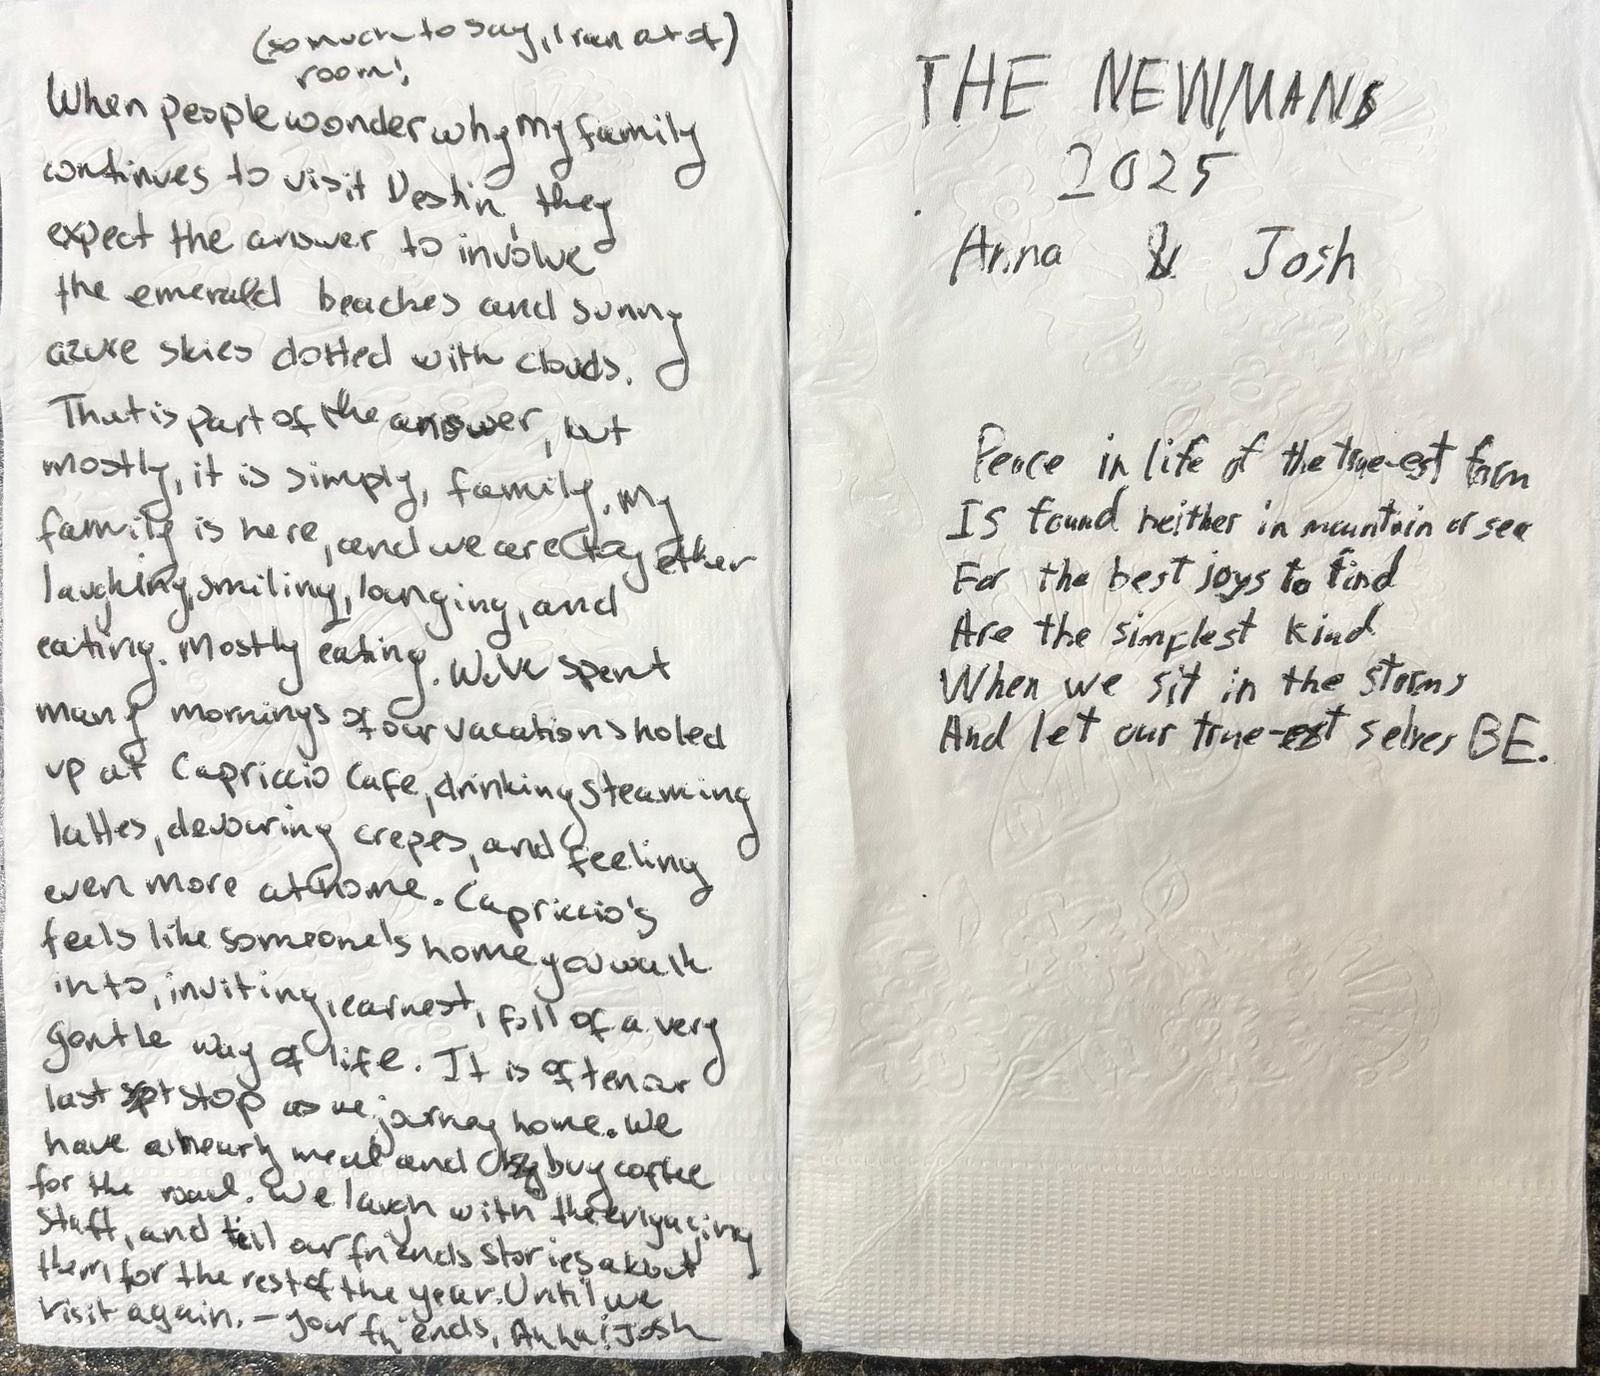 (so much to say, I ran out of)
room!
When people wonder why my family
continues to visit Destin, they
expect the answer to involve
the emerald beaches and sunny
azure skies dotted with clouds.
That is part of the answer, but
mostly, it is simply, family. My
family is here, and we are together
laughing, smiling, lounging, and
eating. Mostly eating. We've spent
many mornings of our vacations holed
up at Capriccio Cafe, drinking steaming
lattes, devouring crepes, and feeling
even more at home. Capriccio's
feels like someone's home you walk
into, inviting, earnest, full of a very
gentle way of life. It is often our
last stop as we journey home. We
have a hearty meal and buy coffee
for the road. We laugh with the engaging
staff, and tell our friends stories about
them for the rest of the year. Until we
visit again. – your friends, Anna & Josh
THE NEWMANS
2025
Anna & Josh
Peace in life of the true-est form
Is found neither in mountain or sea
For the best joys to find
Are the simplest kind
When we sit in the storms
And let our true-est selves BE.